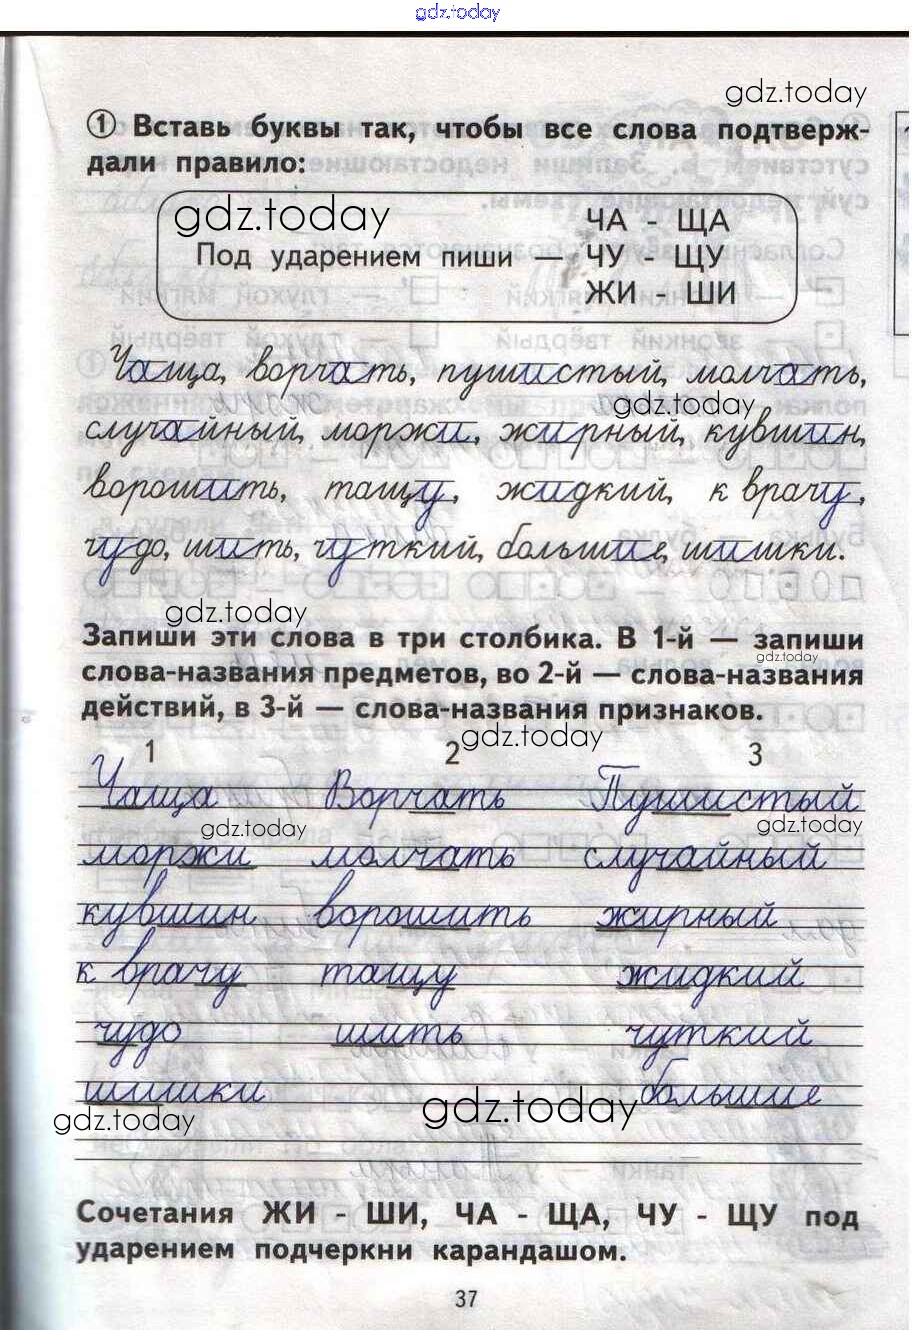 gdz.today
gdz.today
1 Вставь буквы так, чтобы все слова подтверж-
дали правило:
gdz.today
ЧА - ЩА
Под ударением пиши — ЧУ - ЩУ
ЖИ - ШИ
Чаща, ворчать, пушистый, молчать,
gdz.today
случайный, моржи, жирный, кувшин,
ворошить, тащу, жидкий, к врачу,
чудо, шить, чуткий, большие, шишки.
gdz.today
Запиши эти слова в три столбика. В 1-й — запиши
gdz.today
слова-названия предметов, во 2-й — слова-названия
действий, в 3-й — слова-названия признаков.
gdz.today
1 2 3
Чаща Ворчать Пушистый
gdz.today gdz.today
моржи молчать случайный
кувшин ворошить жирный
к врачу тащу жидкий
чудо шить чуткий
шишки большие
gdz.today gdz.today
Сочетания ЖИ - ШИ, ЧА - ЩА, ЧУ - ЩУ под
ударением подчеркни карандашом.
37